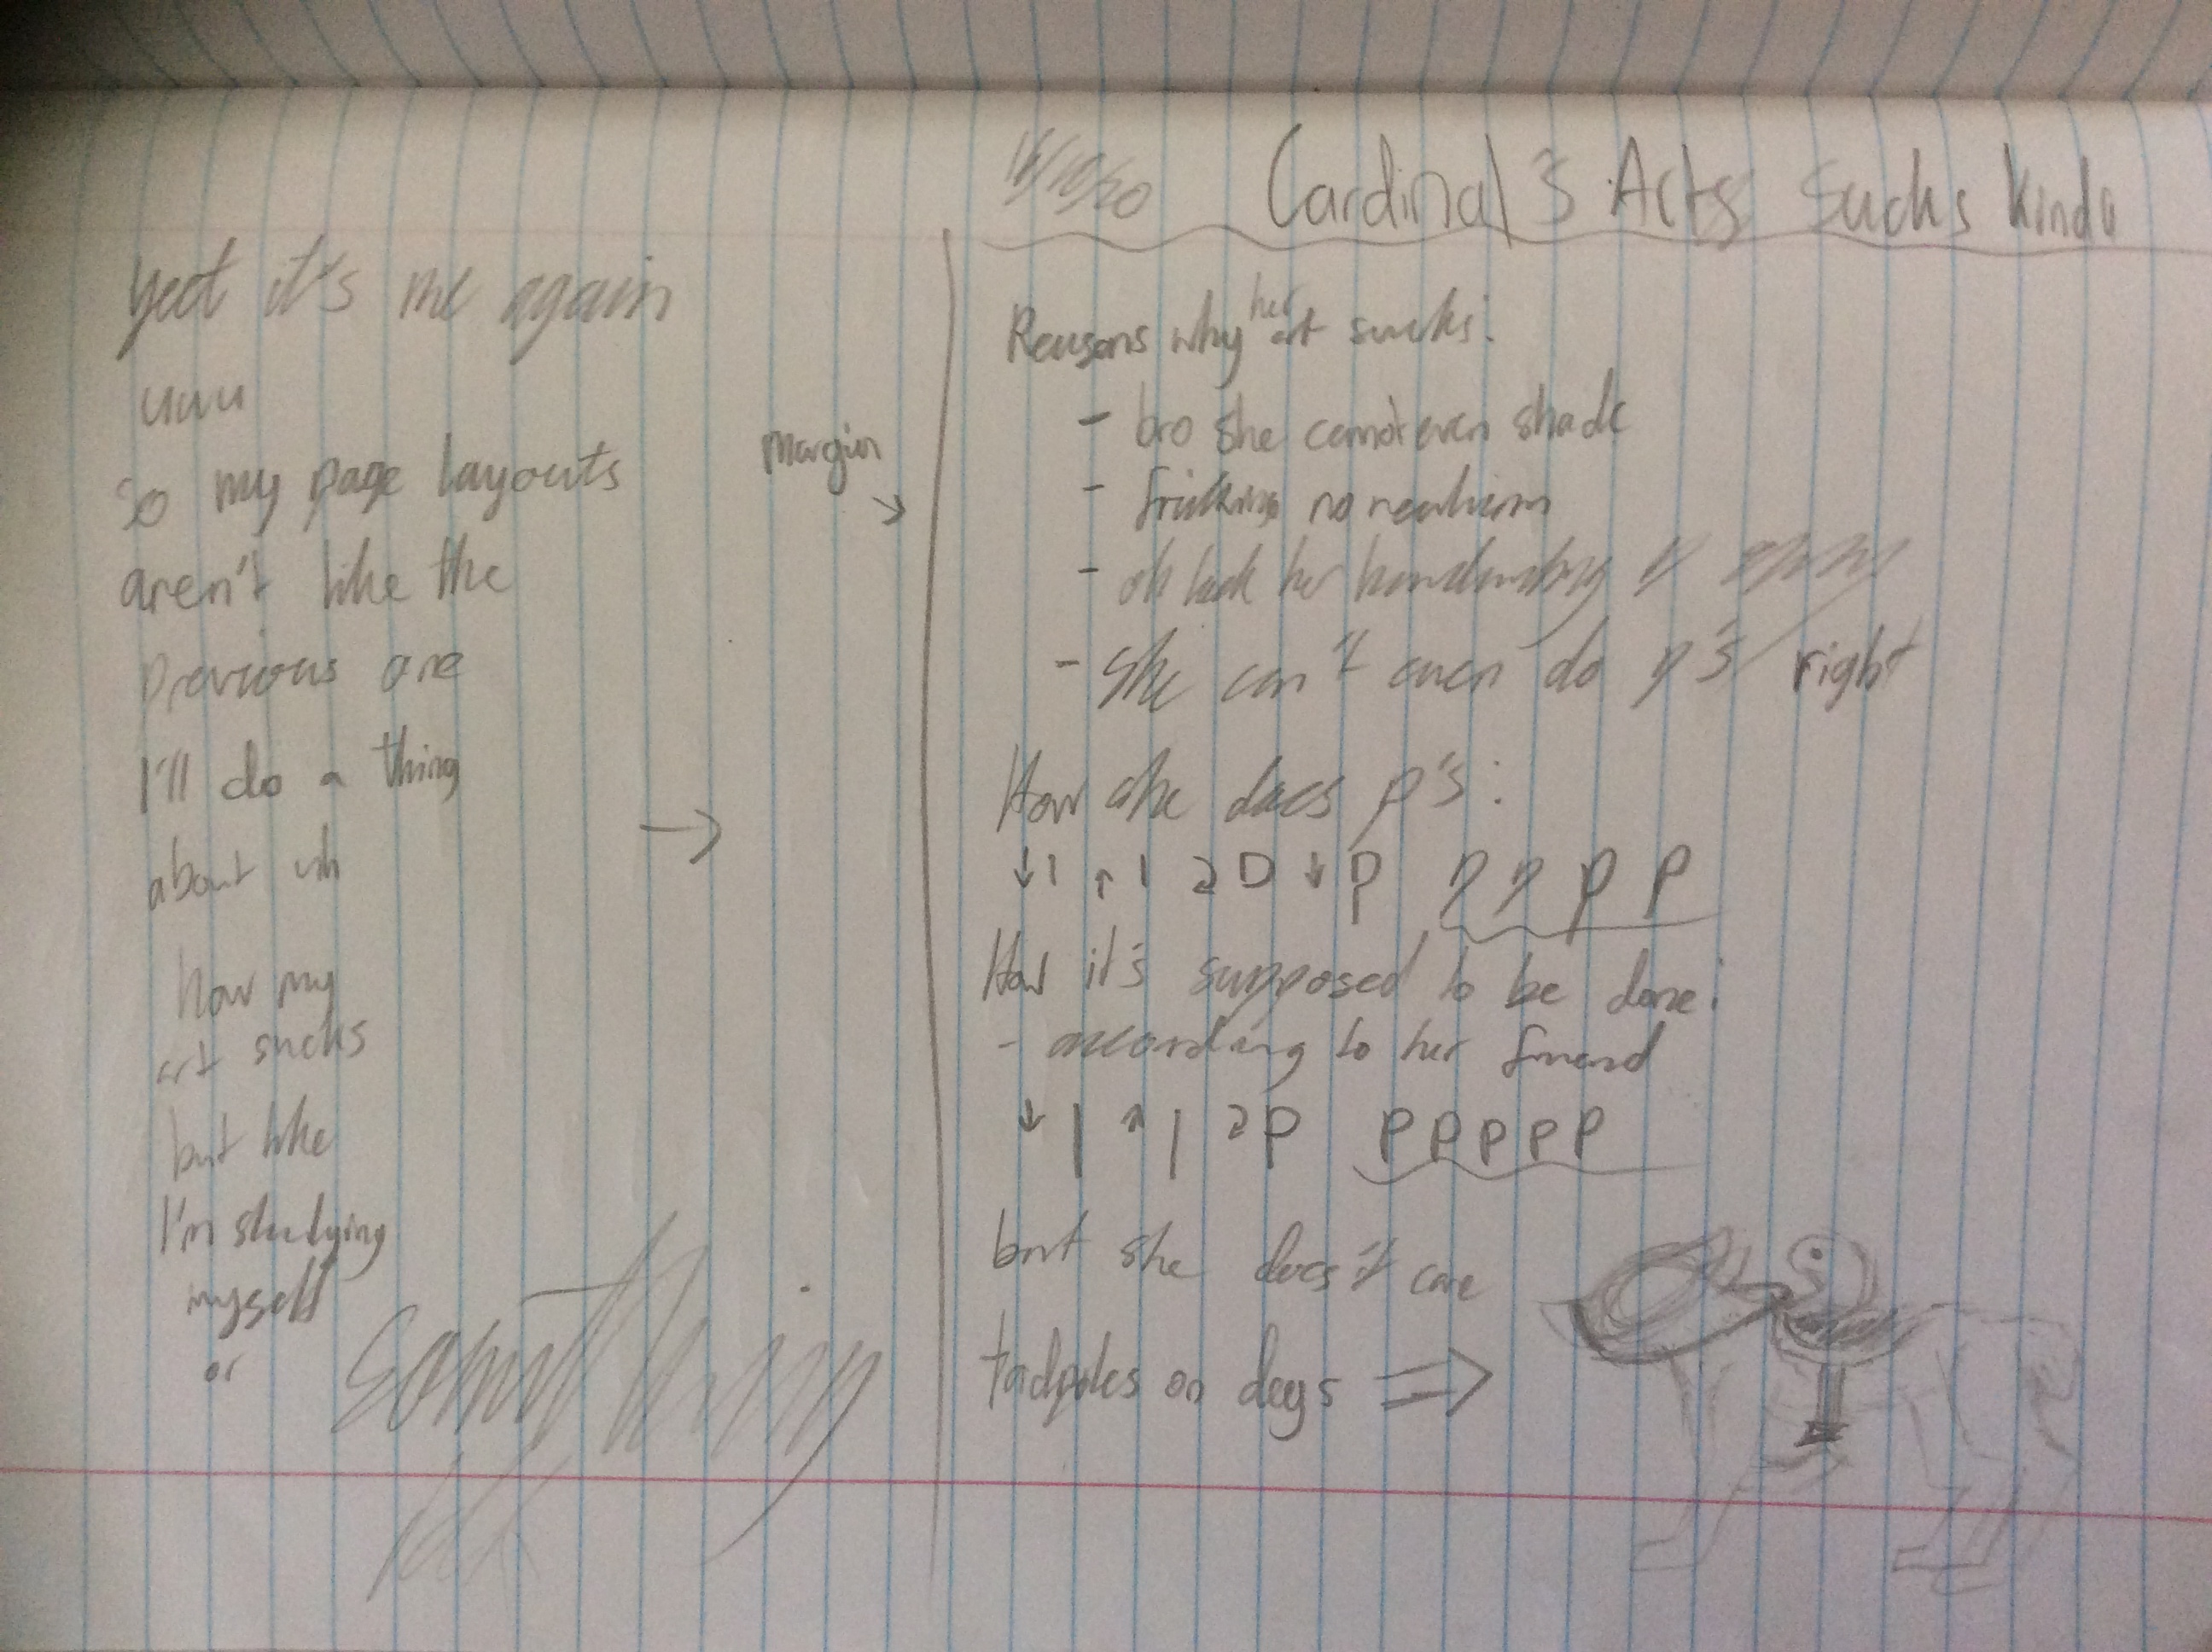 yeet it's me again
uwu
so my page layouts
aren't like the
previous one
I'll do a thing
about uh
how my
art sucks
but like
I'm studying
myself
or
something
idk
margin
Cardinal's Acts Sucks kinda
Reasons why her art sucks:
- bro she cannot even shade
- no realism
- oh look her handwriting
- she can't even do p's right
How she does p's:
↓ l ↑ l D ↓ p p p p p
How it's supposed to be done:
- according to her friend
↓ | ↑ | p p p p p p
but she does't care
tadpoles on dogs ⇒